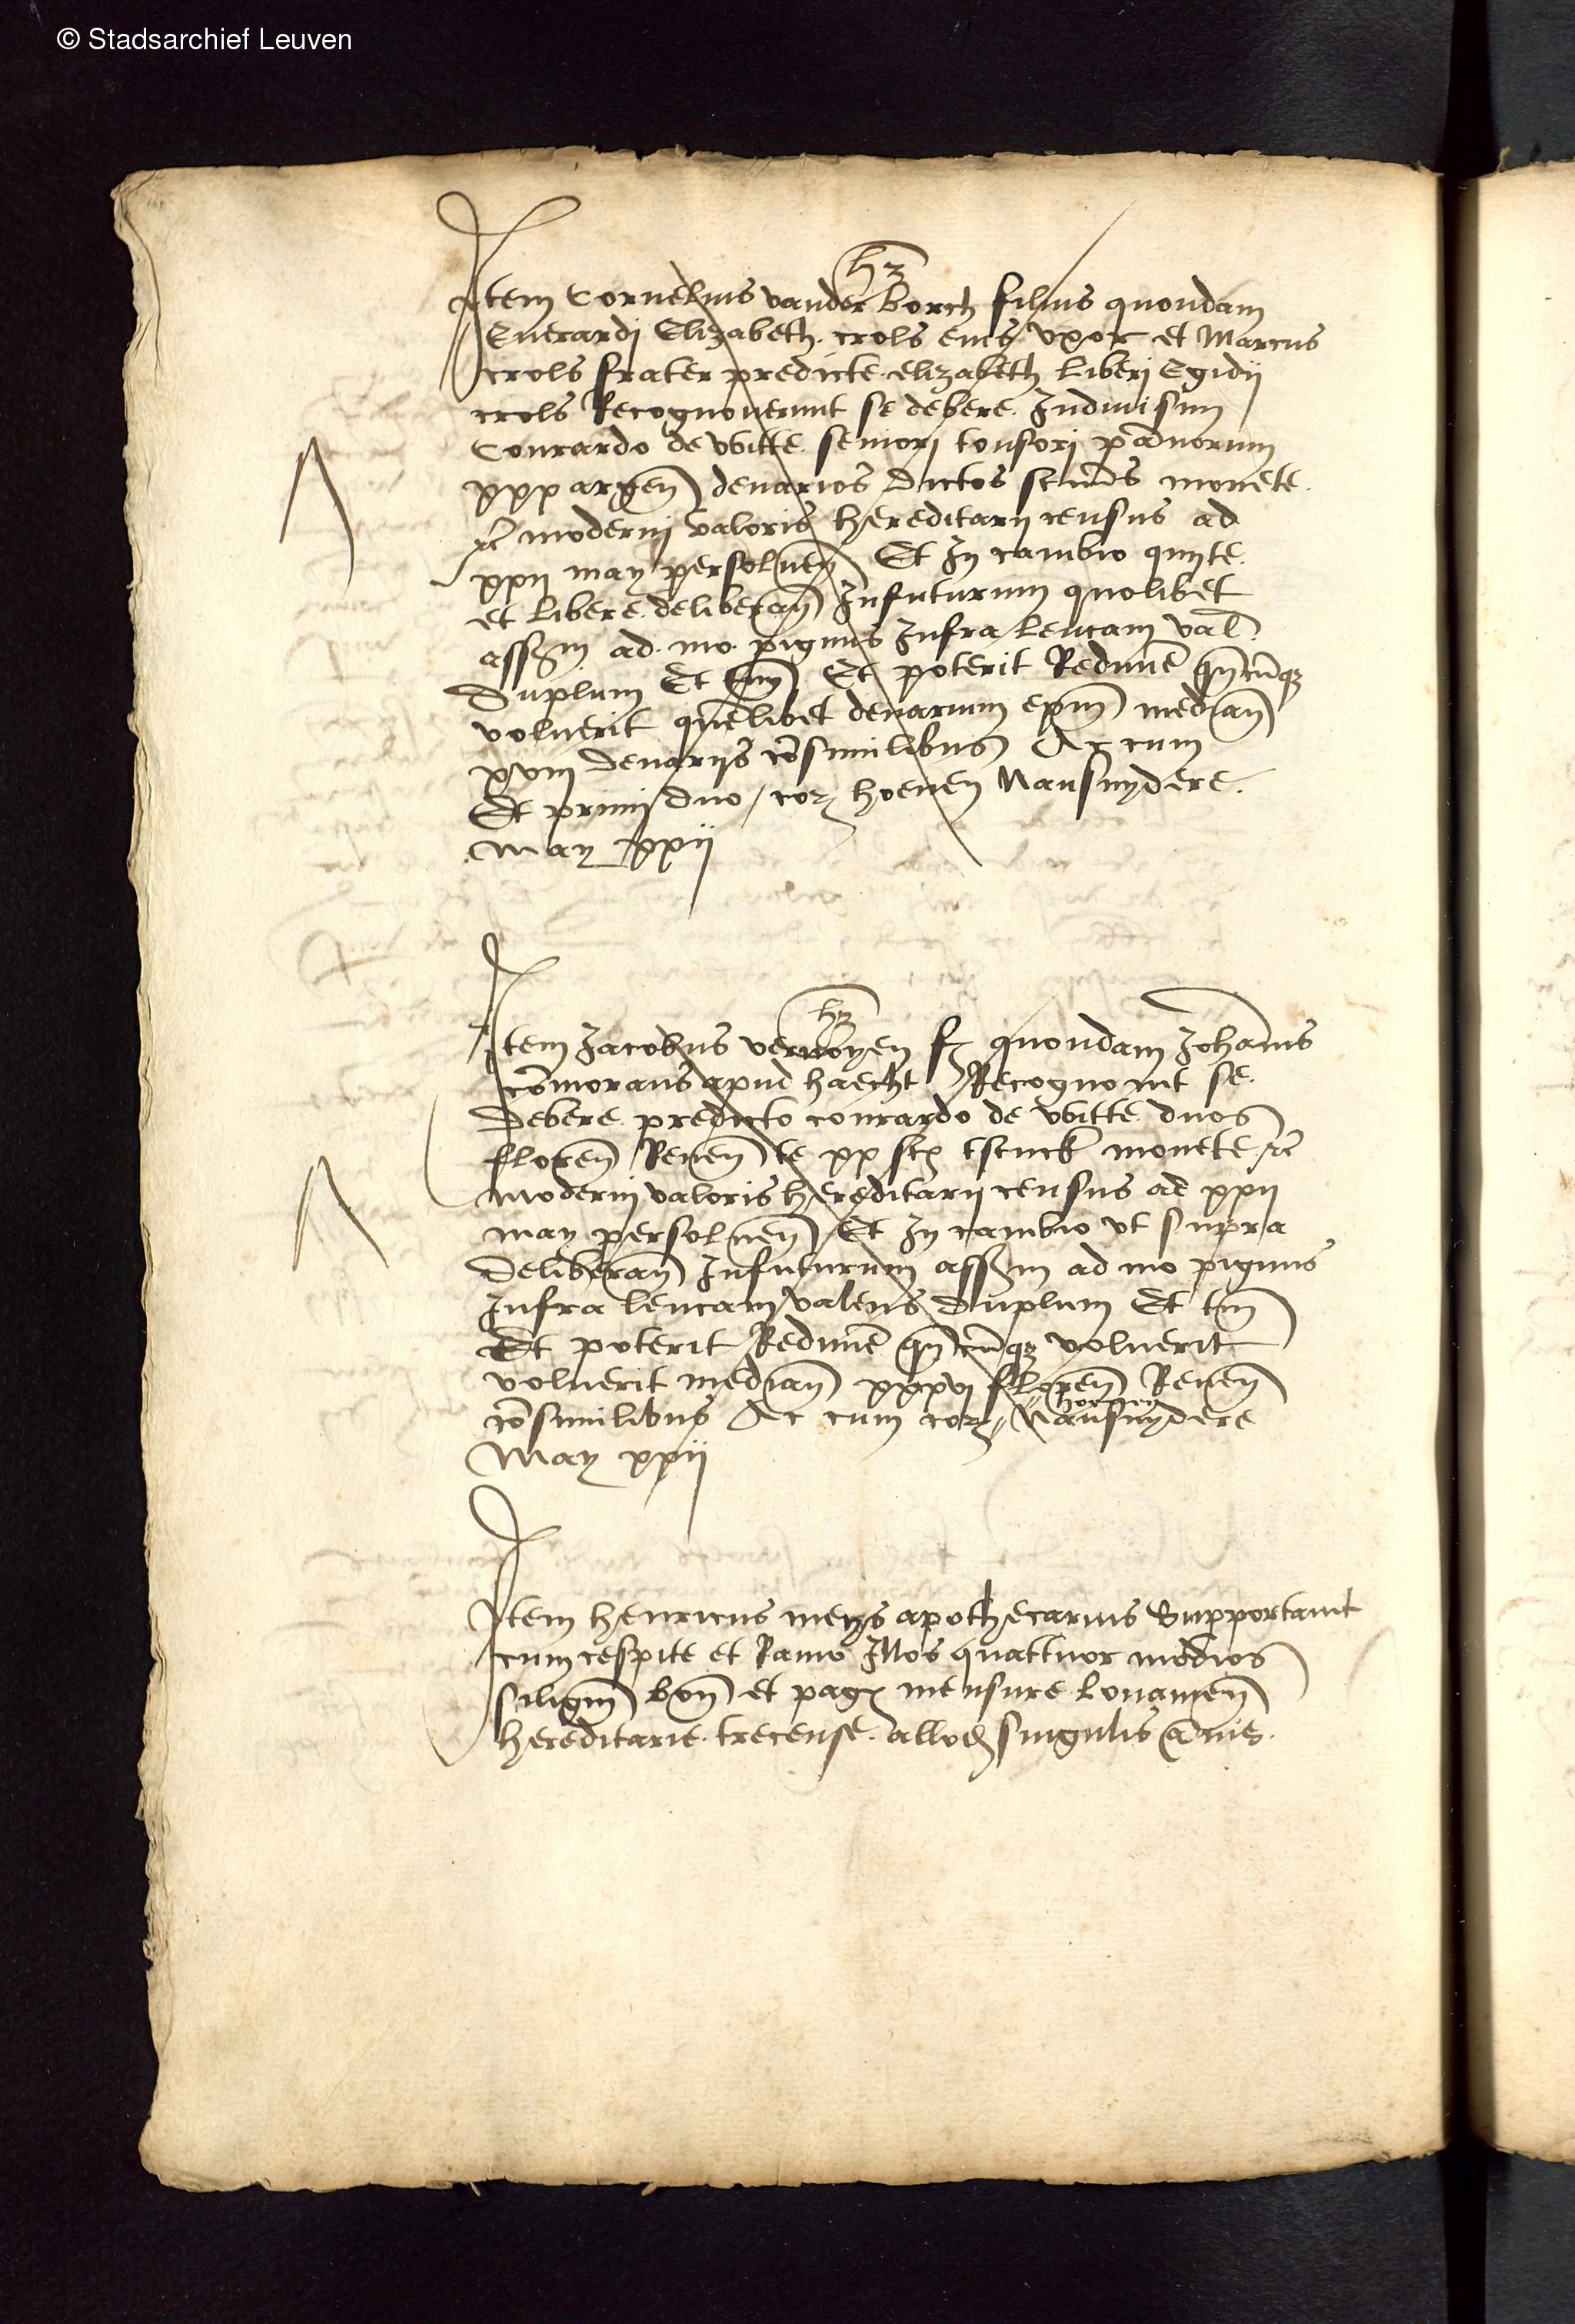 © Stadsarchief Leuven
hz
Item Cornelius vander borch filius quondam
Euerardi Elizabeth crols eius uxor et Marcus
crols frater predicte elizabeth liberi Egidii
crols Recognouerunt se debere Indiuisim
Conrardo de Witte seniori tonsori pannorum
xxx argen denarios dictos stuuers monete
rc moderni valoris hereditarii census ad
xxii may persoluen Et In cambio quite
et libere deliberan Infuturum quolibet
assem ad mo pignus Infra leucam val
duplum Et tm Et poterit Redime qncuqz
voluerit quelibet denarium epm median
xviii denariis cosimilibus Ac cum
Et primi duo / cor hoeuen Nausnydere
May xxii
hz
Item Jacobus vernoyen f quondam Johannis
comorans apud haecht Recognouit se
debere predicto conrardo de Witte duos
floren Renen te xx st tstuck monete rc
moderni valoris hereditarii census ad xxii
may persoluen Et In cambio ut supra
deliberan Infuturum assem ad mo pignus
Infra leucam valens duplum Et tm
Et poterit Redime qncuqz voluerit
voluerit median xxxvi floren Renen
hoeuen
cosimilibus Ac cum cor Nausnydere
May xxii
Item henricus meys apothecarius Supportauit
cum cespite et Ramo Illos quattuor modios
siligin bon et pag mensure louanien
hereditarie trecense allod singulis annis